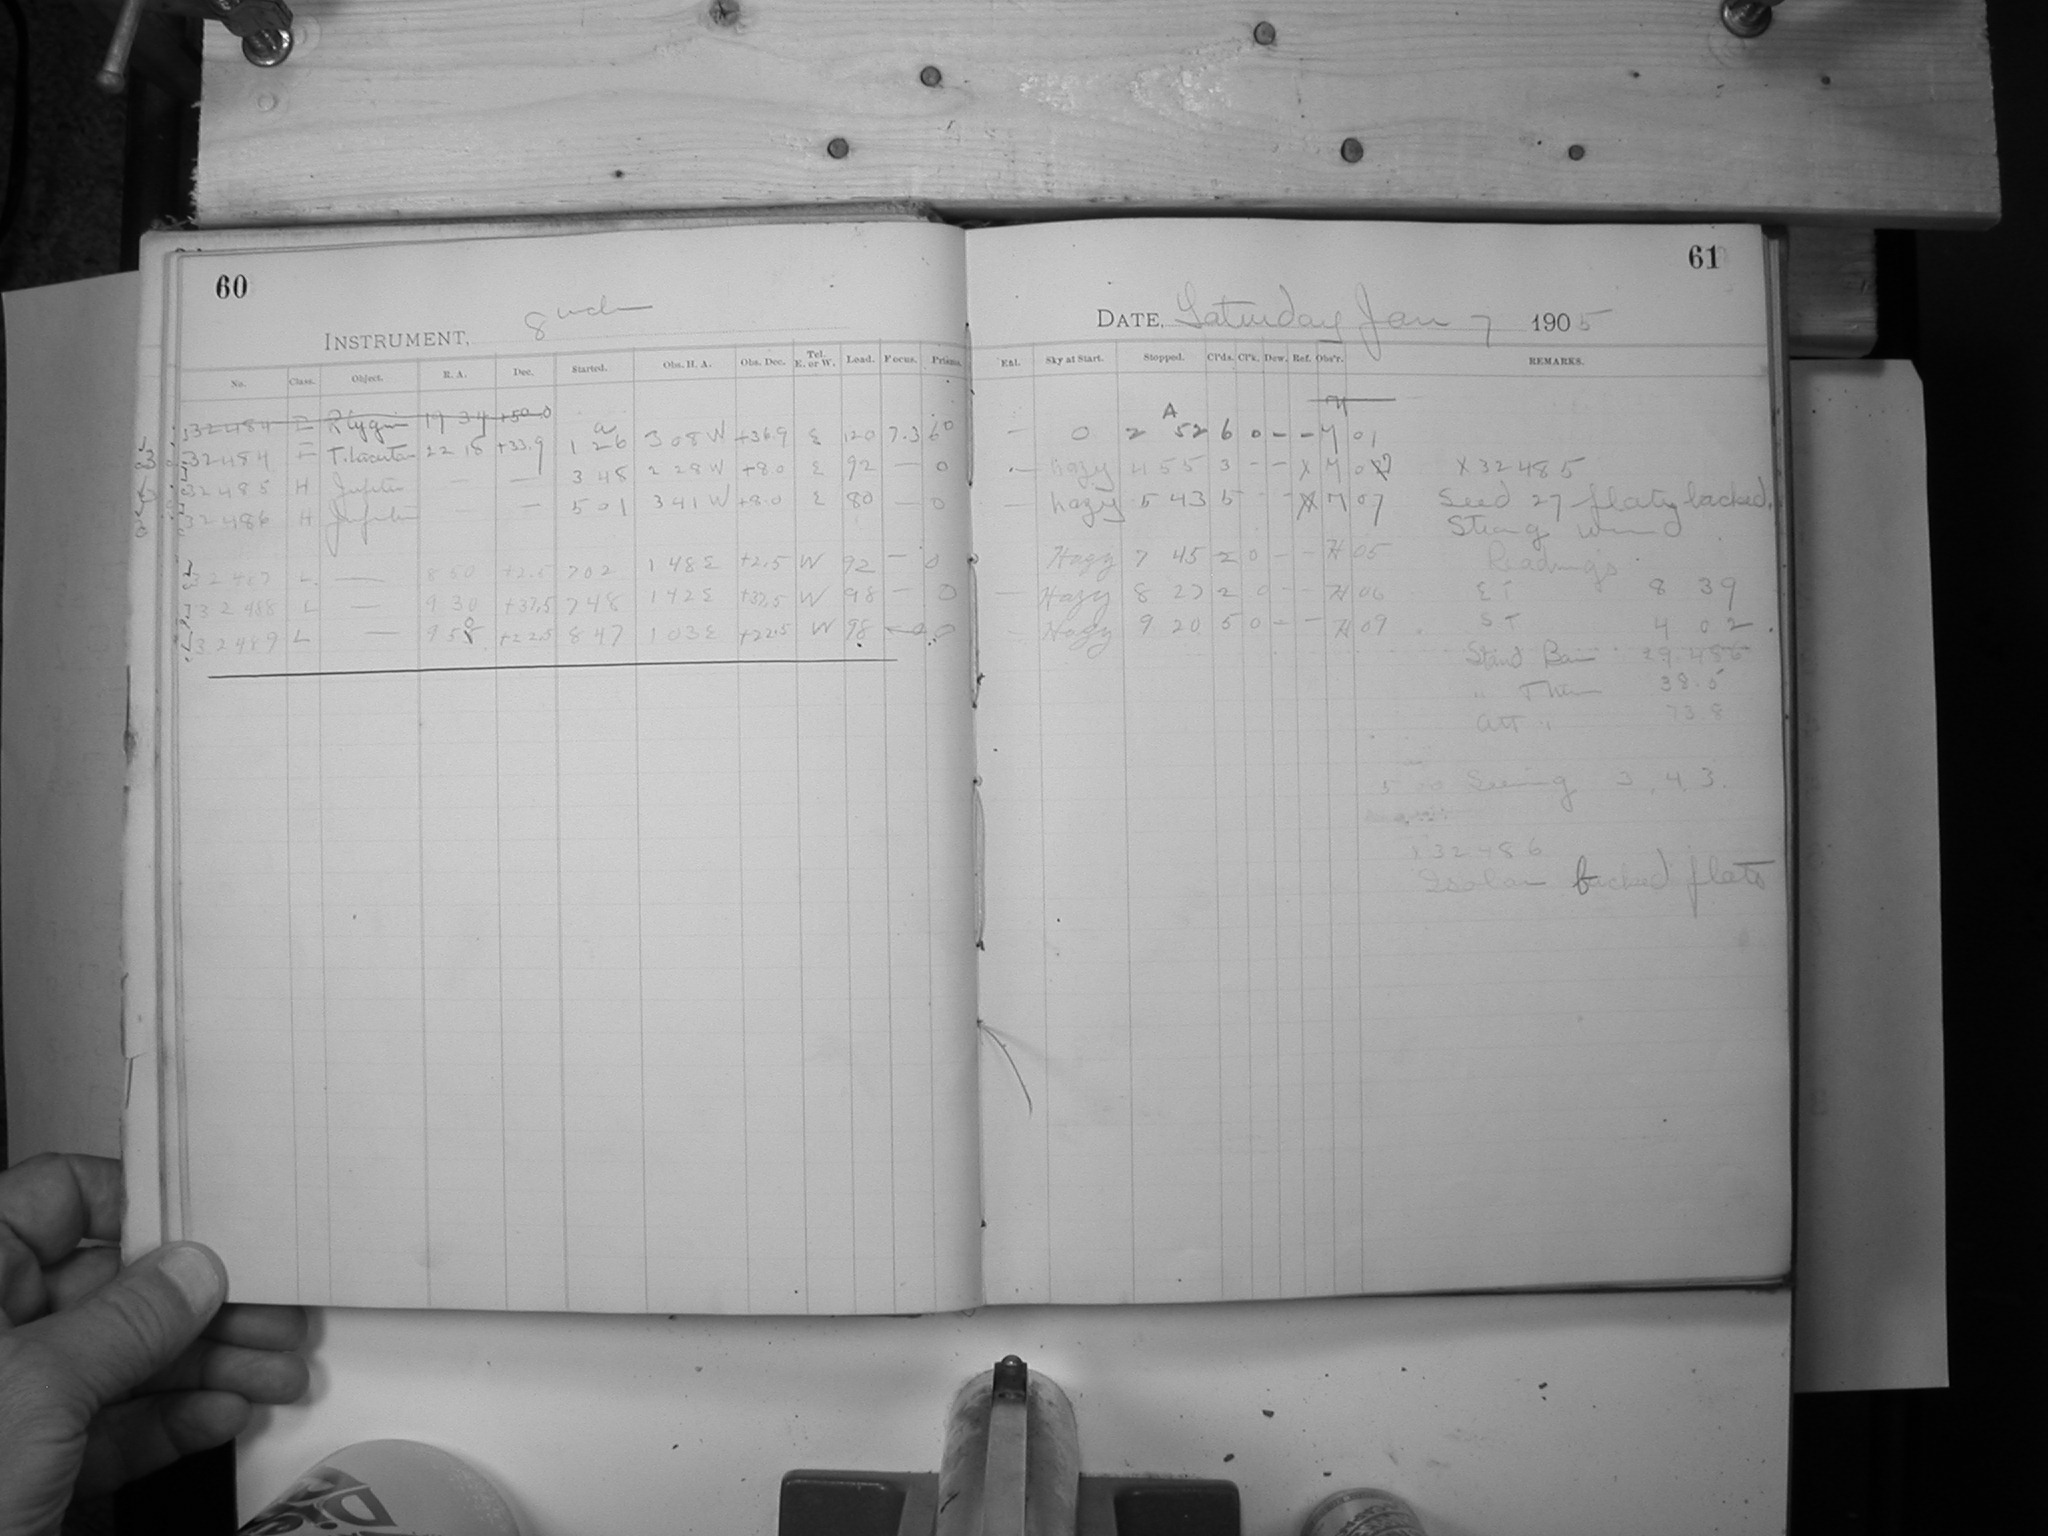 60
INSTRUMENT, 8 inch
No. Class. Object. R. A. Dec. Started. Obs. H. A. Obs. Dec. Tel. E. or W. Load. Focus. Prisms.
32484 R Cygni 19 34 +50.0
32484 F 22 18 +33.9 1 26 3 08 W +36.9 E 120 7.3 60
32485 H Jupiter — — 3 48 2 28 W +8.0 E 92 — 0
32486 H Jupiter — — 5 01 3 41 W +8.0 E 80 — 0
L — 8 50 +2.5 7 02 1 48 E +2.5 W 92 — 0
32488 L — 9 30 +37.5 7 48 1 42 E +37.5 W 98 — 0
32489 L — +22.5 8 47 1 03 E +22.5 W 98 0
61
DATE, Saturday Jan 7 1905
Exl. Sky at Start. Stopped. Cl'ds. Cl'k. Dew. Ref. Obs'r. REMARKS.
— 0 A 2 52 6 0 — — M 01
— hazy 4 55 3 - - X M X32485
— hazy 5 43 5 - - X M 07 Seed 27 flaty backed.
Strong wind
Hazy 7 45 2 0 - - H 05 Readings
— Hazy 8 27 2 0 - - H 06 E T 8 39
— Hazy 9 20 5 0 - - H 09 S T 4 02
Stand Bar 29.486
" Ther 38.5
Att " 73 8
Seeing 3, 4, 3.
X32486
backed flats
Die